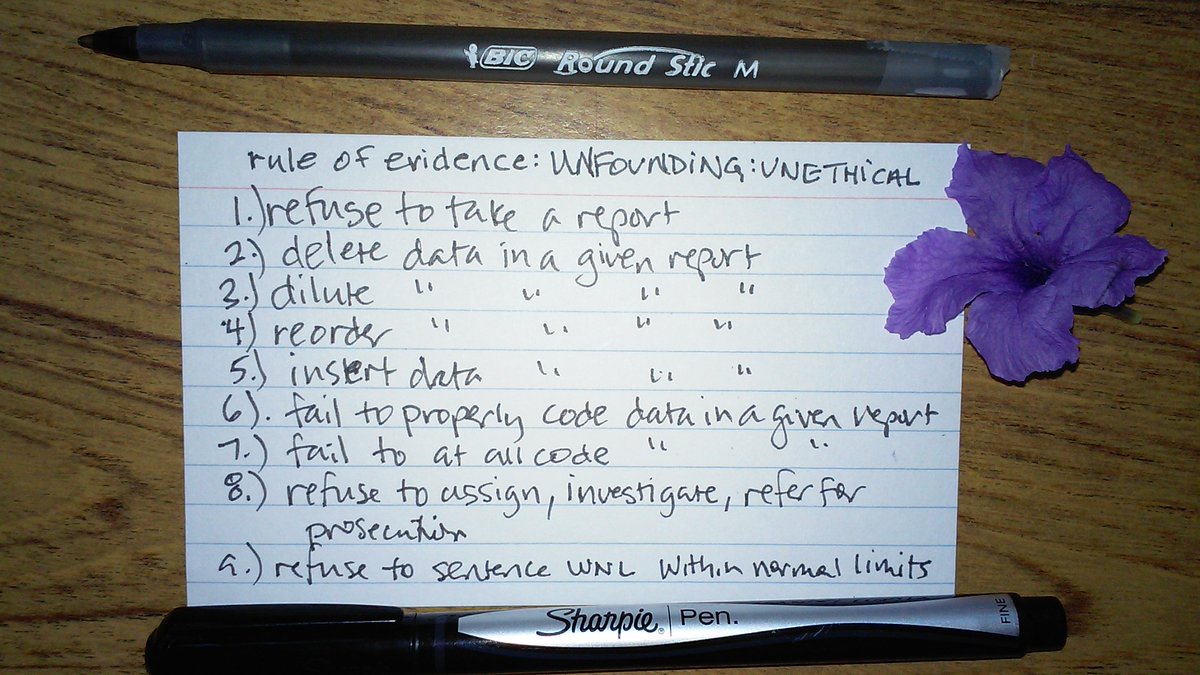 BIC Round Stic M
rule of evidence: UNFOUNDING: UNETHICAL
1.) refuse to take a report
2.) delete data in a given report
3.) dilute " " " "
4) reorder " " " "
5.) insert data " " "
6). fail to properly code data in a given report
7.) fail to at all code " "
8.) refuse to assign, investigate, refer for
prosecution
9.) refuse to sentence WNL within normal limits
Sharpie. Pen. FINE